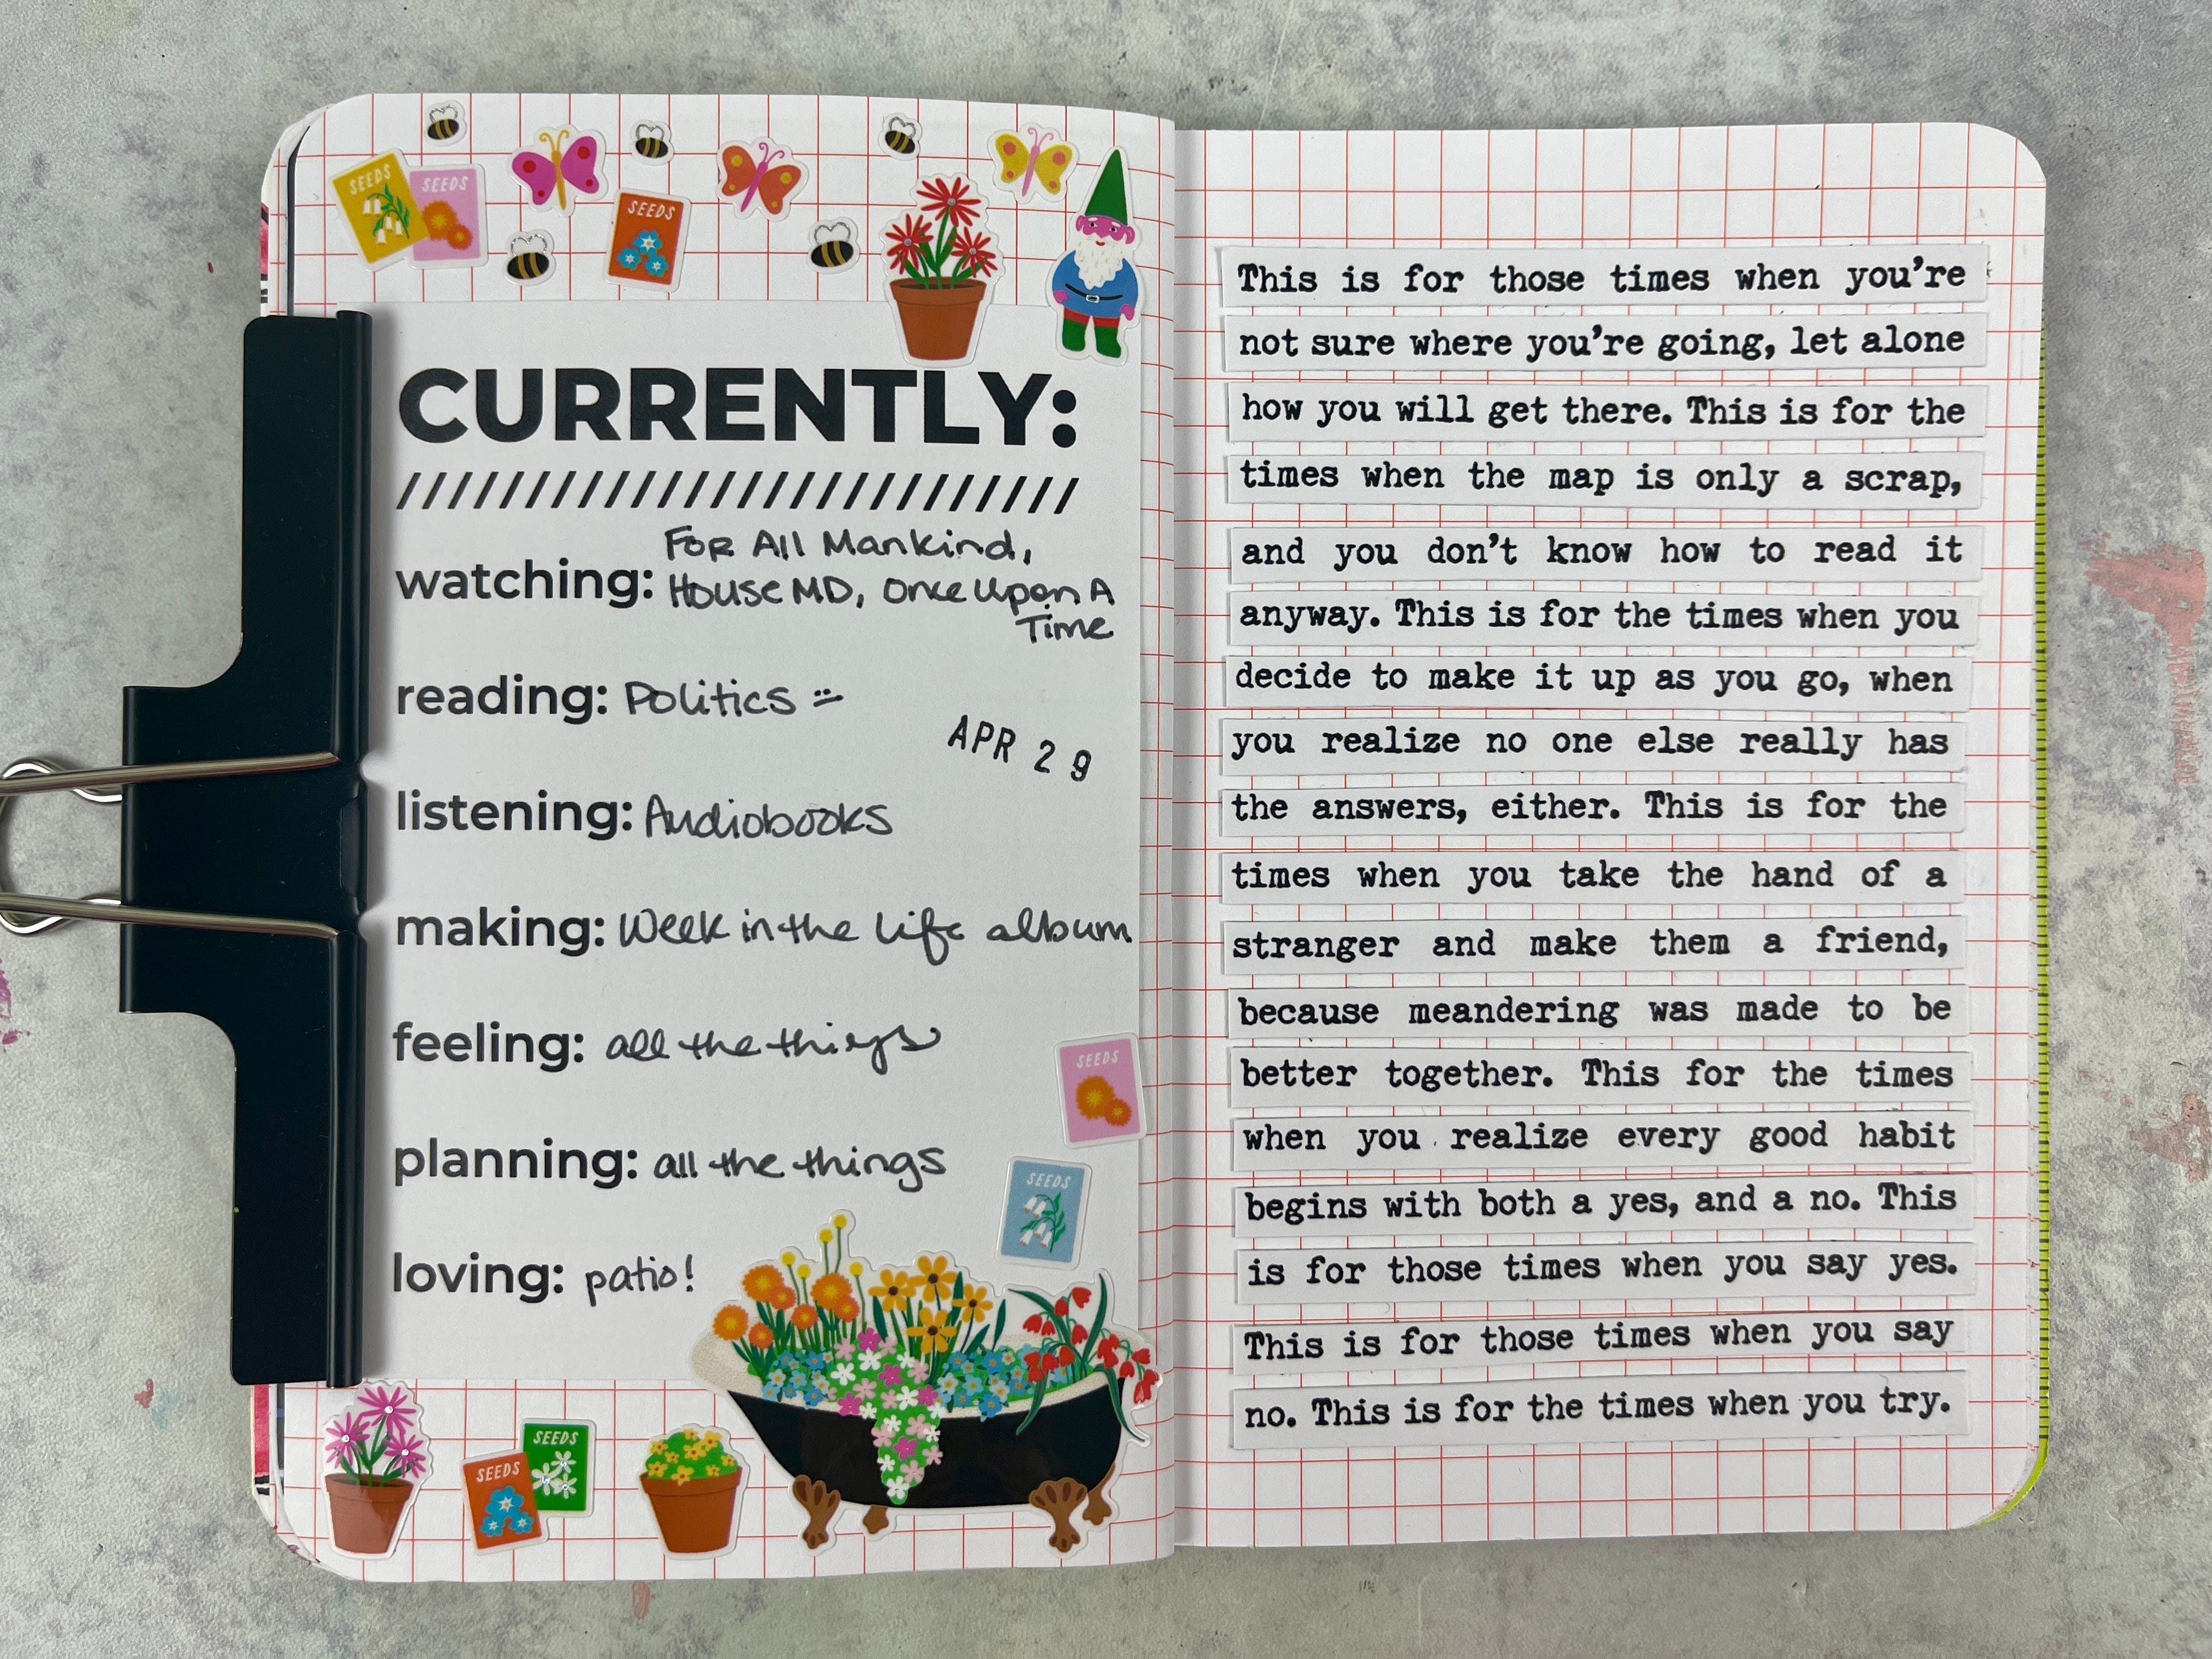 SEEDS
SEEDS
SEEDS
CURRENTLY:
//////////////////////////// 
watching: For All Mankind,
House MD, Once Upon A
Time
reading: Politics
APR 29
listening: Audiobooks
making: Week in the Life album
feeling: all the things
SEEDS
planning: all the things
SEEDS
loving: patio!
SEEDS
SEEDS
This is for those times when you're
not sure where you're going, let alone
how you will get there. This is for the
times when the map is only a scrap,
and you don't know how to read it
anyway. This is for the times when you
decide to make it up as you go, when
you realize no one else really has
the answers, either. This is for the
times when you take the hand of a
stranger and make them a friend,
because meandering was made to be
better together. This for the times
when you realize every good habit
begins with both a yes, and a no. This
is for those times when you say yes.
This is for those times when you say
no. This is for the times when you try.